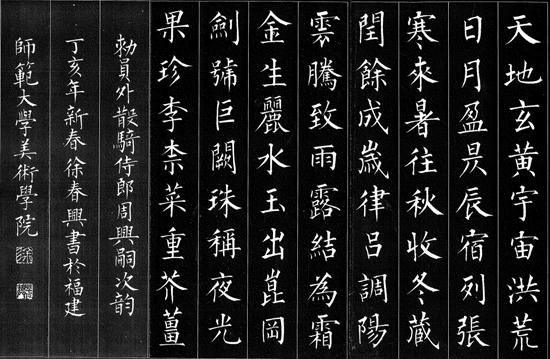 天地玄黃宇宙洪荒
日月盈昃辰宿列張
寒來暑往秋收冬藏
閏餘成歲律呂調陽
雲騰致雨露結為霜
金生麗水玉出崑岡
劍號巨闕珠稱夜光
果珍李柰菜重芥薑
勑員外散騎侍郎周興嗣次韵
丁亥年新春徐春興書於福建
師範大學美術學院